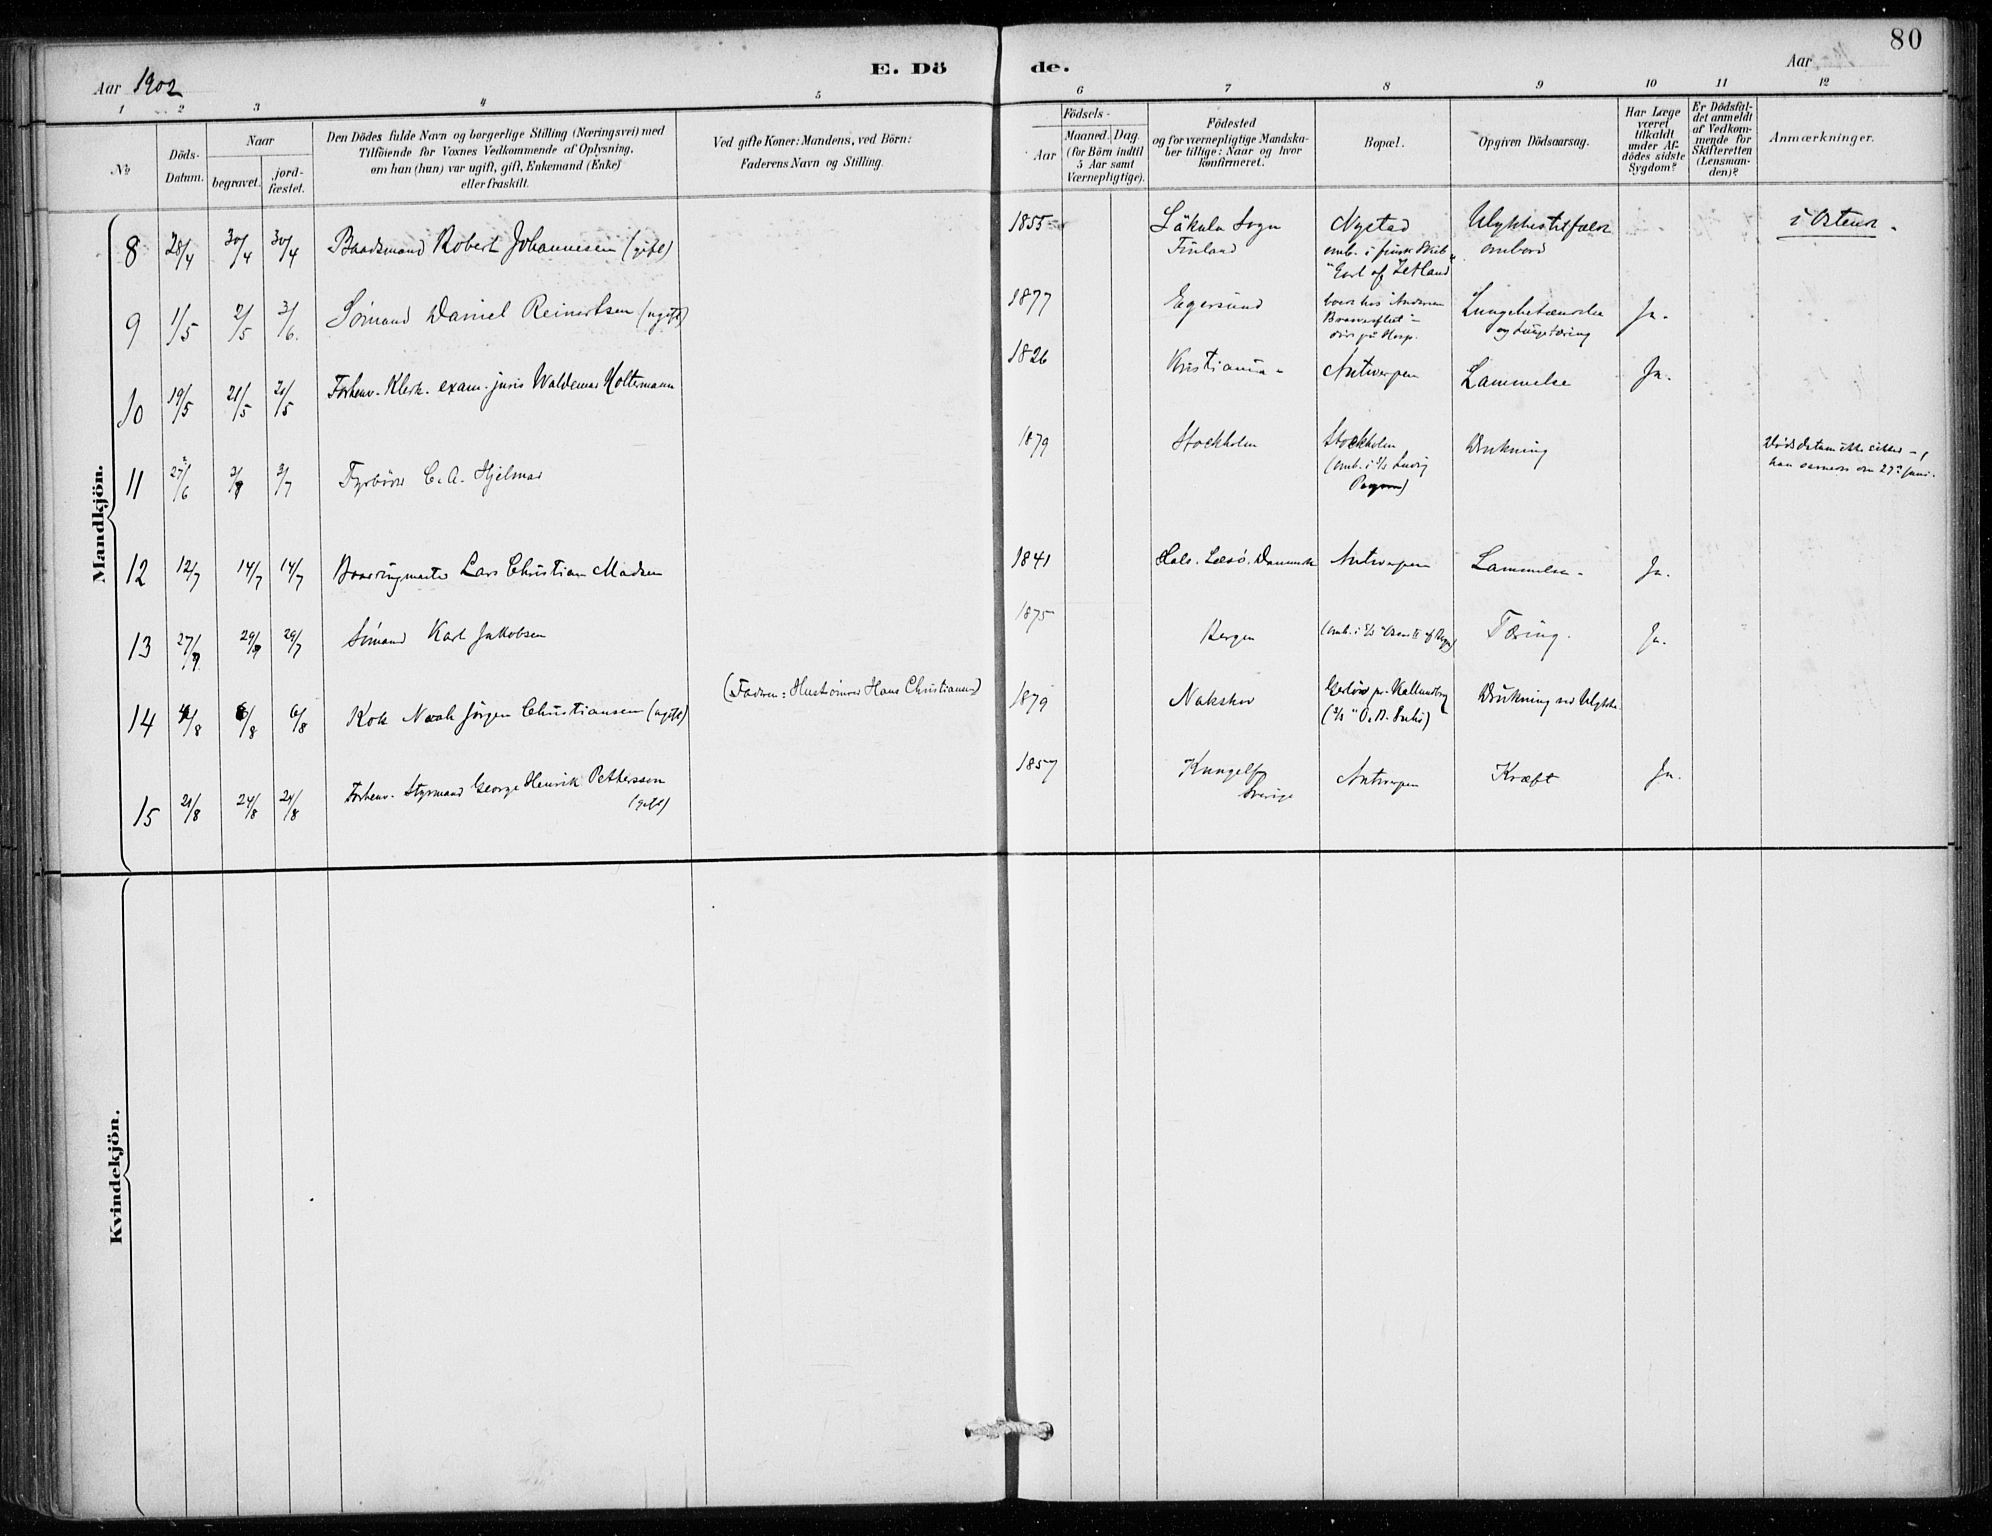 80
Aar 1902
E. Dö de.
Aar
1 2 3 4 5 6 7 8 9 10 11 12
№
Döds-Datum.
Naar
begravet.
jord-fæstet.
Den Dödes fulde Navn og borgerlige Stilling (Næringsvei) med
Tilföiende for Voxnes Vedkommende af Oplysning,
om han (hun) var ugift, gift, Enkemand (Enke)
eller fraskilt.
Ved gifte Koner: Mandens, ved Börn:
Faderens Navn og Stilling.
Födsels-
Aar
Maaned. Dag.
(for Börn indtil
5 Aar samt
Værnepligtige).
Födested
og for værnepligtige Mandska-
ber tillige: Naar og hvor
konfirmeret.
Bopæl.
Opgiven Dödsaarsag.
Har Læge
været
tilkaldt
under Af-
dödes sidste
Sygdom?
Er Dödsfal-
det anmeldt
af Vedkom-
mende for
Skifteretten
(Lensman-
den)?
Anmærkninger.
Mandkjön.
8 28/4 30/4 30/4 Baadsmand Robert Johannesen (gift) 1855 Säkula Sogn
Finland
Nystad
omb. i finsk Skib
"Earl of Zetland"
Ulykkestilfælde
ombord
i Ostende.
9 1/5 2/5 3/6. Sömand Daniel Reinertsen (ugift) 1877 Egersund
Lungebetændelse
og Lungetæring
Ja.
10 19/5 21/5 21/5 Forhenv. Klerk. exam. juris Waldemar Holtermann 1826 Kristiania - Antwerpen Lammelse Ja.
11 27/6 3/7 3/7 Fyrböter C. A. Hjelmar 1879 Stockholm
Stockholm
(omb. i S/S Ludvig
Drukning
Dödsdatum ikke sikker -,
han 27de Juni.
12 12/7 14/7 14/7 Lars Christian Madsen 1841 Hals. Læsö. Danmark Antwerpen Lammelse - Ja.
13 27/7 29/7 29/7 Sömand Karl Jakobsen 1875 Bergen
Tæring. Ja.
14 4/8 6/8 6/8 Kok Noah Jörgen Christiansen (ugift) (Faderen: Hustömrer Hans Christiansen) 1879 Nakskov
pr. Kallundborg
Drukning ved Ulykke.
15 21/8 24/8 24/8 Forhenv. Styrmand George Henrik Pettersson
(gift)
1857 Kungelf
Sverige
Antwerpen Kræft Ja.
Kvindekjön.